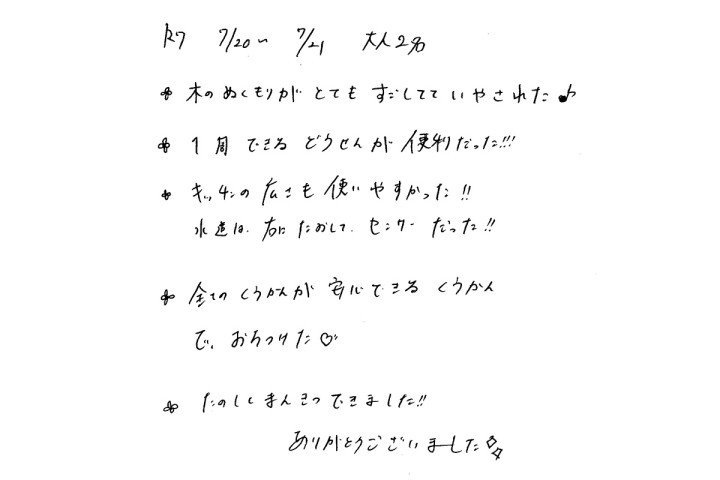 R7 7/20〜 7/21 大人2名
木のぬくもりが とても すごしてて いやされた♪
1周 できる どうせんが 便利だった!!!
キッチンの 広さも 使いやすかった!!
水道は、右に たおして、センサー だった!!
全てのくうかんが 安心できる くうかん
で、おちつけた♡
たのしく まんきつ できました!!
ありがとうございました